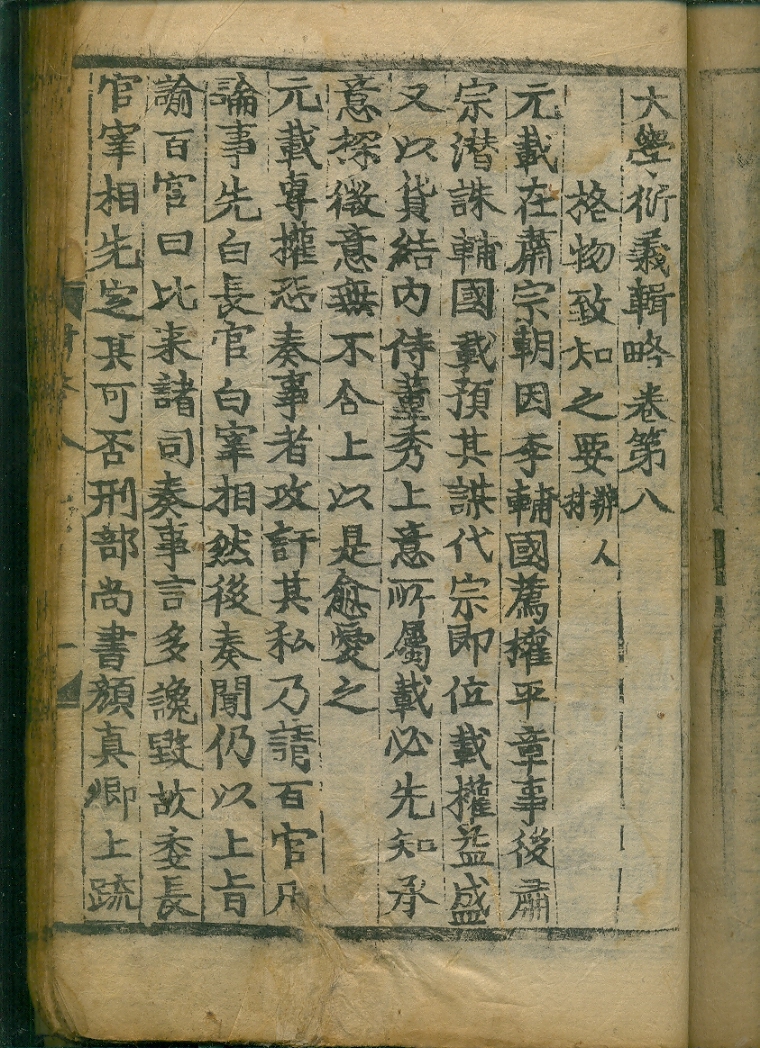 大學衍義輯略卷第八
格物致知之要 辨人材
元載在肅宗朝因李輔國薦擢平章事後肅
宗潛誅輔國載預其謀代宗即位載權益盛
又以貨結內侍董秀上意所屬載必先知承
意探微意無不合上以是愈愛之
元載專權恐奏事者攻訐其私乃請百官凡
論事先白長官白宰相然後奏聞仍以上旨
諭百官曰比来諸司奏事言多讒毀故委長
官宰相先定其可否刑部尚書顔真卿上疏